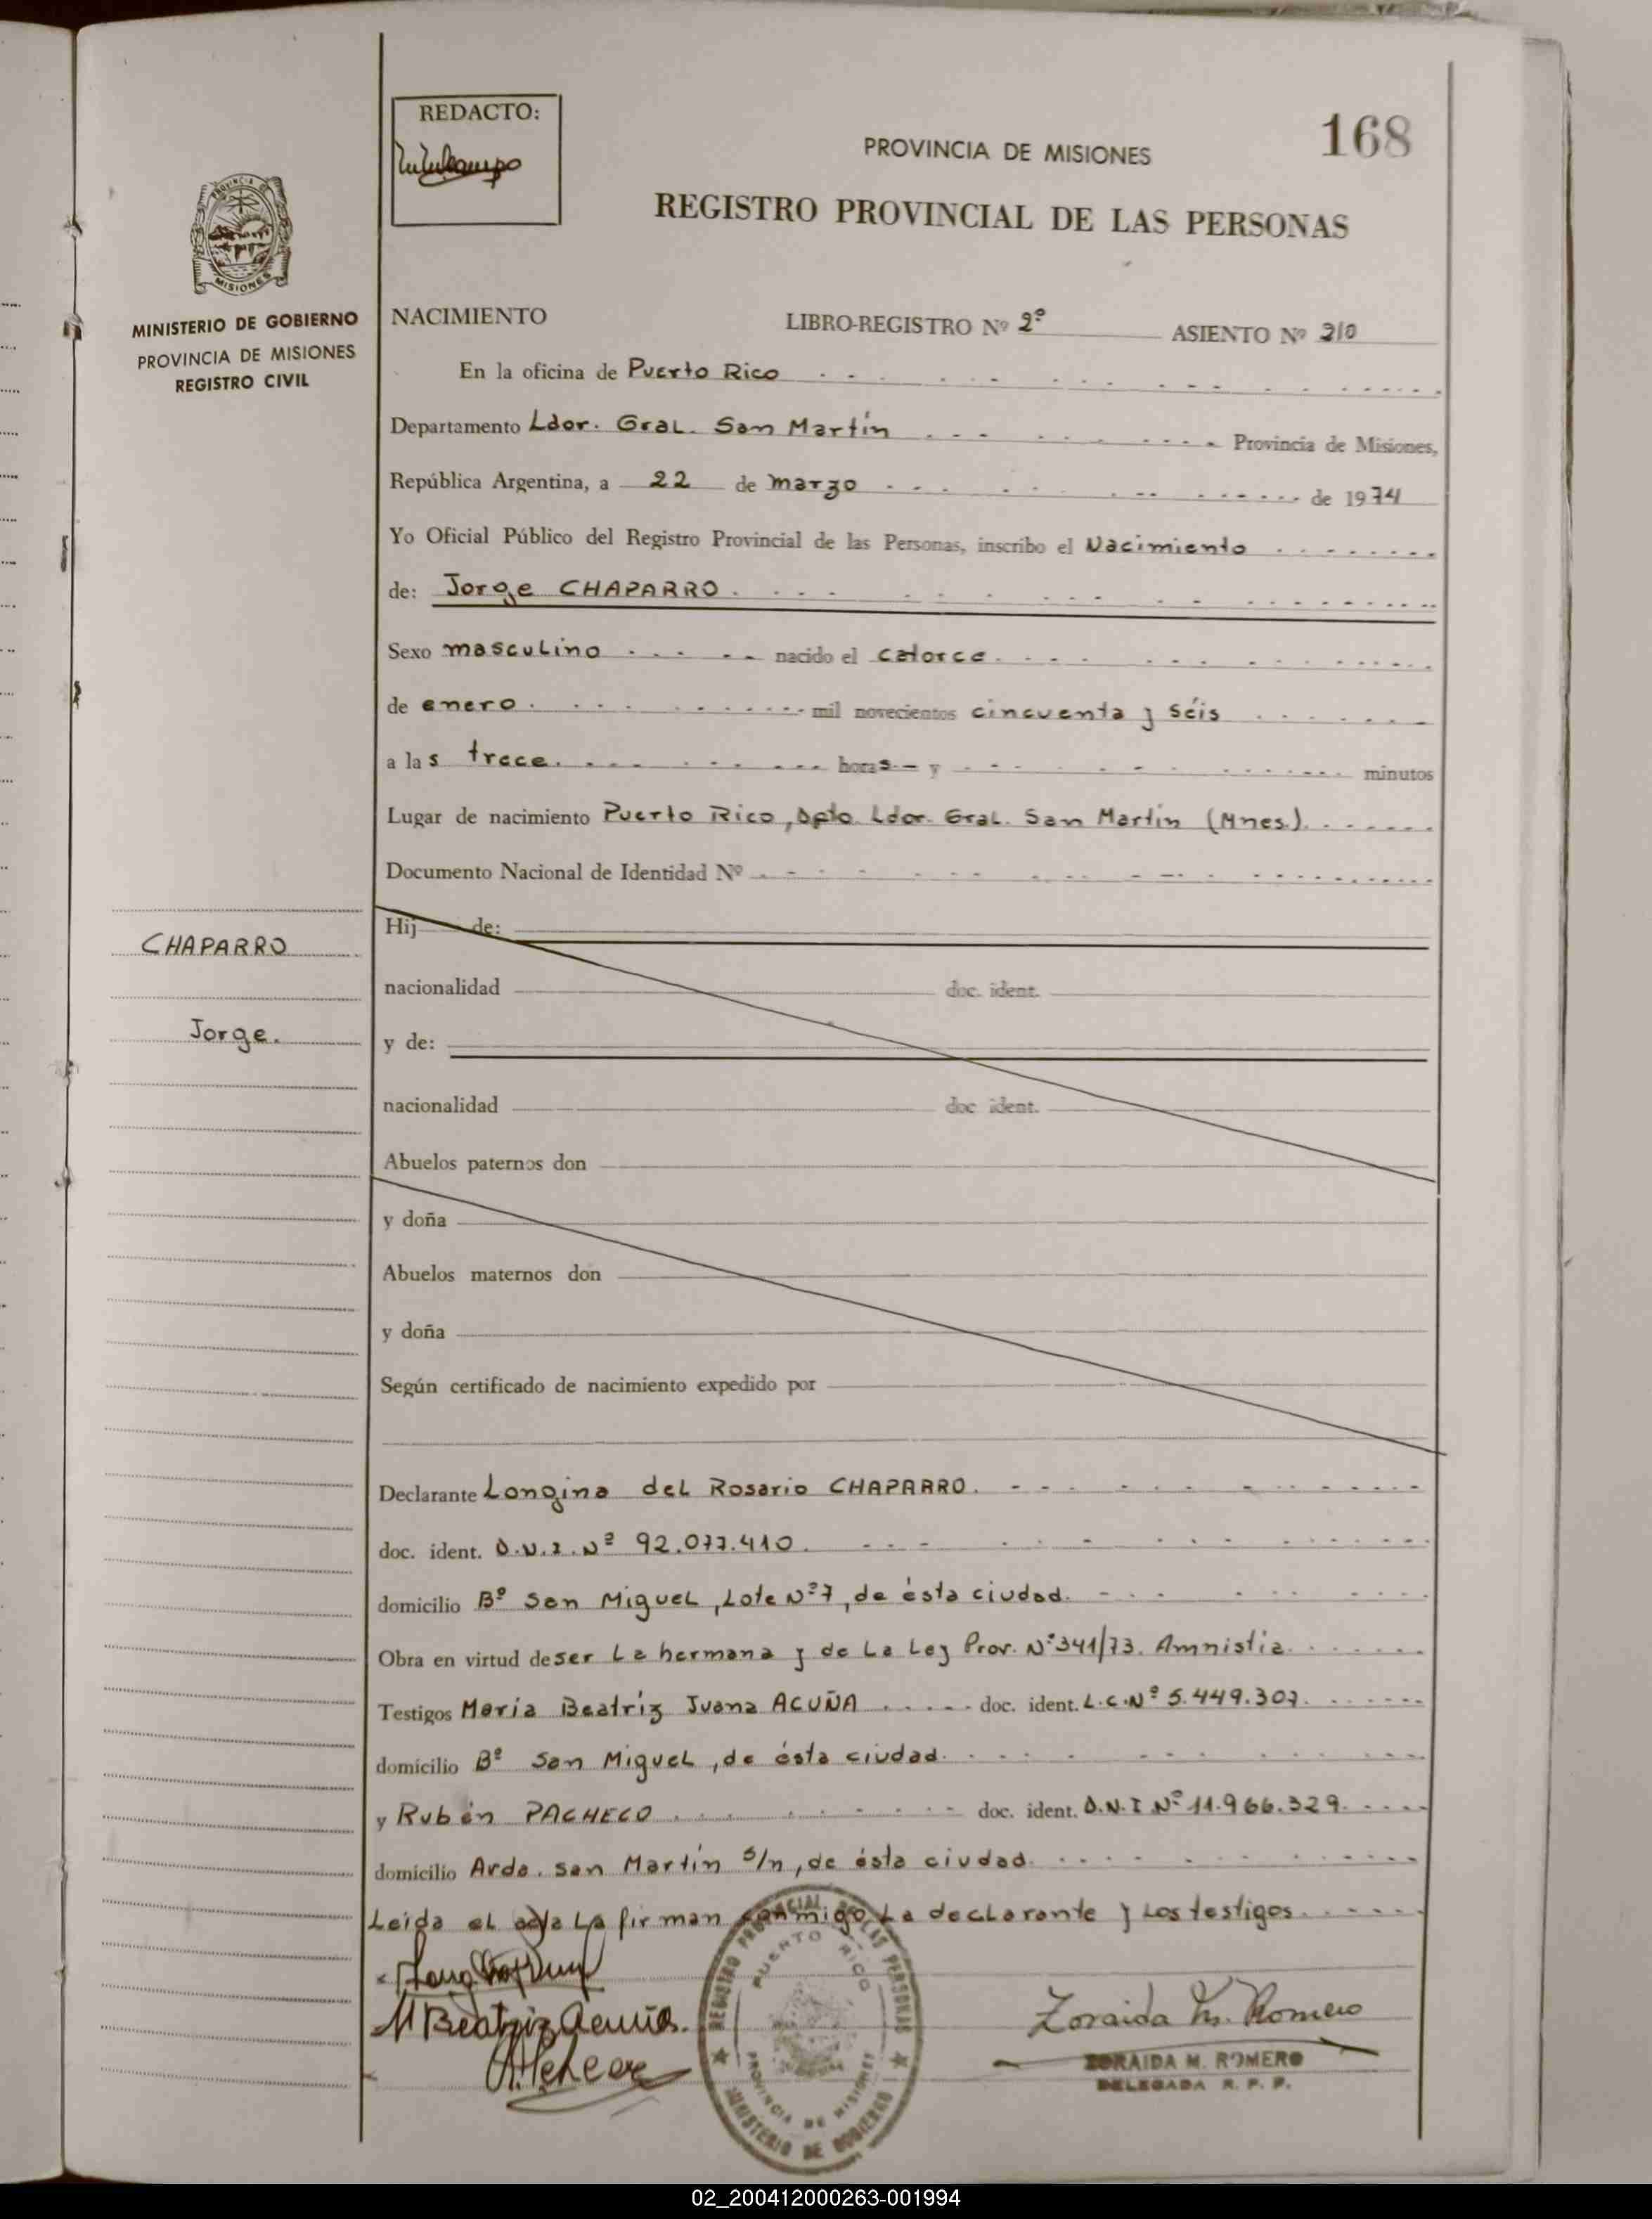 REDACTO:
168
PROVINCIA DE MISIONES
REGISTRO PROVINCIAL DE LAS PERSONAS
MISIONES
MINISTERIO DE GOBIERNO
PROVINCIA DE MISIONES
REGISTRO CIVIL
NACIMIENTO LIBRO-REGISTRO Nº 2º ASIENTO Nº 210
En la oficina de Puerto Rico
Departamento Ldor. Gral. San Martín Provincia de Misiones,
República Argentina, a 22 de marzo de 1974
Yo Oficial Público del Registro Provincial de las Personas, inscribo el Nacimiento
de: Jorge CHAPARRO.
Sexo masculino nacido el catorce.
de enero. mil novecientos cincuenta y séis
a las trece. horas y minutos
Lugar de nacimiento Puerto Rico, Dpto. Ldor. Gral. San Martín (Mnes.).
Documento Nacional de Identidad Nº
CHAPARRO
Jorge.
Hij de:
nacionalidad doc. ident.
y de:
nacionalidad doc ident.
Abuelos paternos don
y doña
Abuelos maternos don
y doña
Según certificado de nacimiento expedido por
Declarante Longina del Rosario CHAPARRO.
doc. ident. D.N.I. Nº 92.077.410.
domicilio Bº San Miguel, Lote Nº 7, de ésta ciudad.
Obra en virtud de ser la hermana y de la Ley Prov. Nº 341/73. Amnistia.
Testigos María Beatríz Juana ACUÑA doc. ident. L.C. Nº 5.449.307.
domicilio Bº San Miguel, de ésta ciudad.
y Rubén PACHECO doc. ident. D.N.I Nº 11.966.329.
domicilio Avda. San Martín s/n, de ésta ciudad.
Leída el acta la firman conmigo la declarante y los testigos.
M Beatriz Acuña.
Zoraida M. Romero
ZORAIDA M. ROMERO
DELEGADA R. P. P.
REGISTRO PROVINCIAL DE LAS PERSONAS
PUERTO RICO
PROVINCIA DE MISIONES
MINISTERIO DE GOBIERNO
02_200412000263-001994